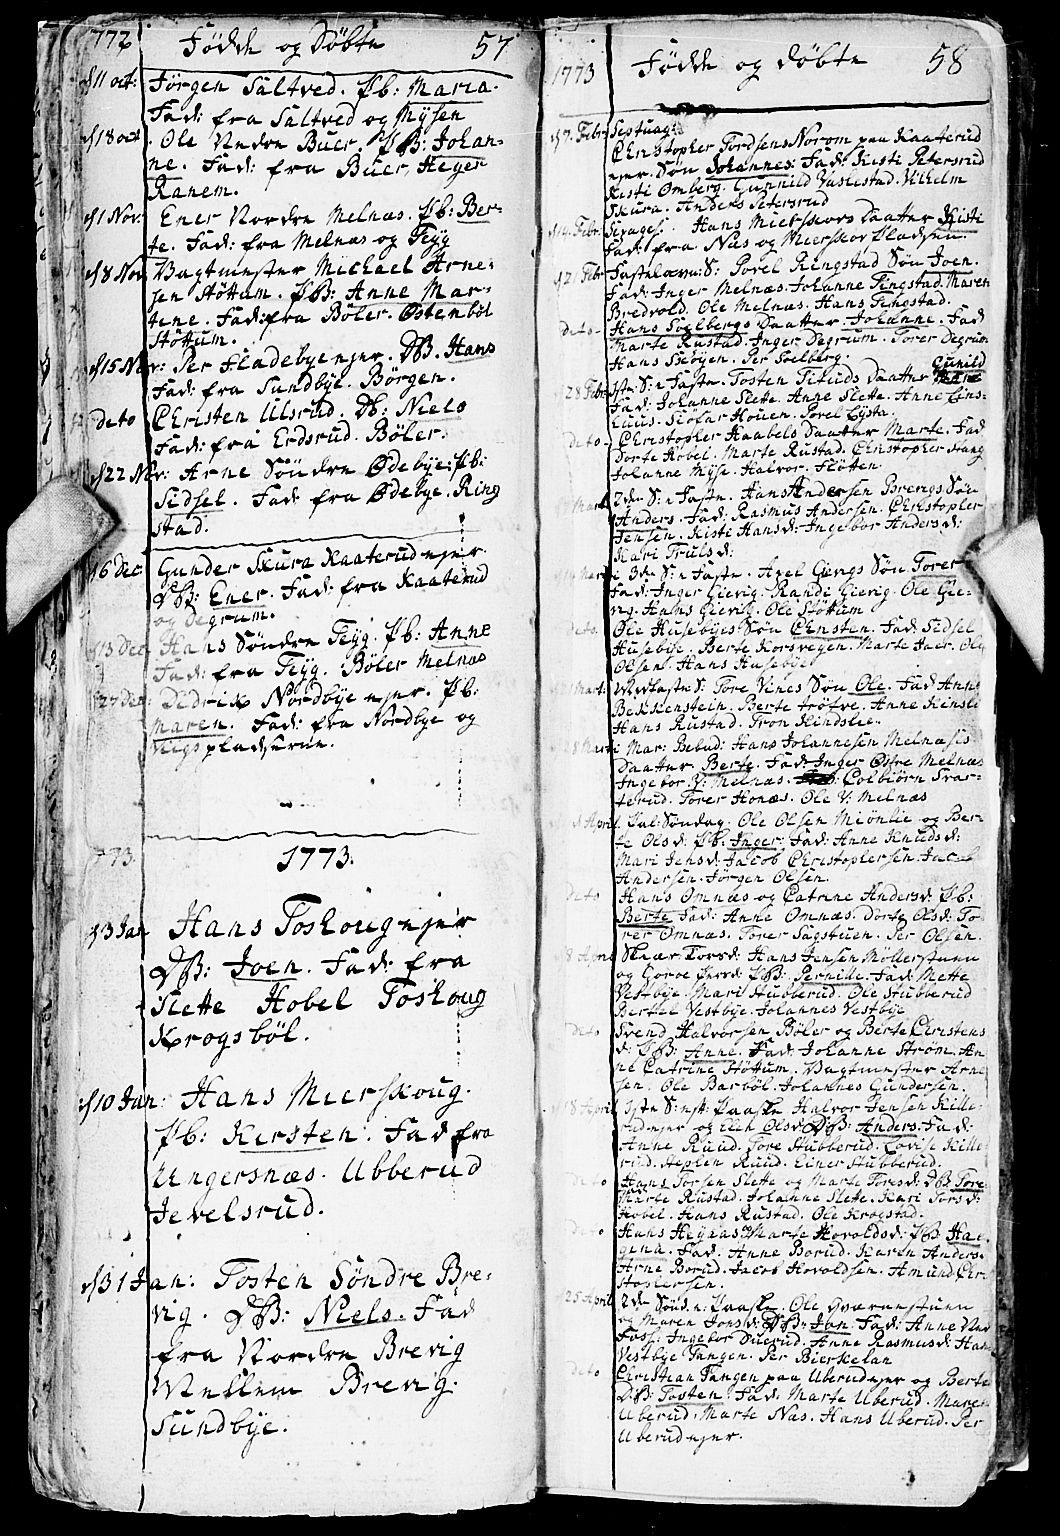 1772 Fødde og Døbte 57
d 11 oct: Jørgen Saltved. Pb: Maria.
Fad: fra Saltved og Mysen
d 18 oct. Ole Nedre Buer. PB: Johan-
ne. Fad: fra Buer, Heyer
Ranem.
d 1 Nov: Ener Nordre Melnæs. Pb: Ber-
te. Fad: fra Melnæs og Teyg
d 8 Nov. Vagtmester Michael Arne-
sen Støttum. PB: Anne Mar-
tene. Fad: fra Bøler. Østenbøl
Støttum.
d 15 Nov: Per Fladebye ejer. DB. Hans
Fad: fra Sundbye. Børgen.
deto Christen Ulsrud. Db: Niels
Fad: fra Erdsrud. Bøler.
d 22 Nov: Arne Søndre Ødebye: Pb:
Sidsel. Fad: fra Ødebye. Ring
stad:
d 6 Dec. Gunder Skura Kaaterud ejer
DB: Ener. Fad: fra Kaaterud
og Degrum.
d 13 Dec. Hans Søndre Teyg. Pb: Anne
Fad: fra Teyg. Bøler Melnæs
d 27 Dec: Didrik Nordbye ejer. Pb:
Maren. Fad: fra Nordbye og
pladserne.
1773. 1773.
d 3 Jan Hans Toskoug ejer
DB: Joen. Fad: fra
Slette Hobel Toskoug
Krogsbøl.
d 10 Jan: Hans Mierskoug.
Pb: Kirsten. Fad fra
Ungersnæs. Ubberud
Jevelsrud.
d 31 Jan: Tosten Søndre Bre-
vig. DB: Niels. Fad
fra Nordre Brevig
Vellem Brevig.
Sundbye.
1773 Fødde og døbte 58
d 7. Febr Septuages:
Christopher Tordsens Norom paa Kaaterud
ejer. Søn Johannes: Fad: Kisti Petersrud
Kisti Omberg. Gunnild Vaslestad. Vilhelm
Skura. Anders Petersrud
d 14. Febr. Sexages: Hans Mierskovs Daatter Kisti
Fad: fra Næs og Mierskov Pladsen.
d 21 Febr Fastelavns: S: Povel Ringstad Søn Joen.
Fad: Inger Melnæs. Johanne Tingstad. Maren
Bredvold. Ole Melnæs. Hans Tingstad.
deto - Hans Soelbergs Daatter Johanne. Fad
Marte Rustad. Inger Degrum. Torer Degrum
Hans Skøyen. Per Soelberg.
28 Febr 1ste S: i Faste. Tosten Fituds Daatter Gunild
Fad: Johanne Slette. Anne Slette. Anne Lins-
Huus. Stofar Houen. Povel Lysta.
deto - Christopher Kaabels Daatter Marte. Fad
Dorte Hobel. Marte Rustad. Christopher Hang
Johanne Myse. Halvor. Fløten.
7 Marti 2den S: i Faste. Hans Andersen Brevigs Søn
Anders. Fad: Rasmus Andersen. Christopher
Jensen. Kisti Hansd: Ingebor Andersd:
Kari Trulsd:
d 14 Marti 3de S: i Faste. Axel Gievigs Søn Torer
Fad: Inger Gievig. Randi Gievig. Ole Gie-
vig. Hans Gievig. Ole Støttum
deto. Ole Husebyes Søn Christen. Fad. Sidsel
Husebye. Berte Korsvegen. Marte Jaer. Ole
Olsen. Hans Husebye
21 Mart: Midfaste S: Tore Vines Søn Ole. Fad Anne
Bekkenstein. Berte Trøfte. Anne Kinsle
Hans Rustad. Tron Kindslee.
28 Marti Mar: Bebud: Hans Johannesen Melnæsis
Daatter Berte. Fad: Inger Øfre Melnæs
Ingebor V: Melnæs. Colbiørn Svar-
terud. Torer Honæs. Ole V: Melnæs
d April Pal: Søndag. Ole Olsen Miønlie og Ber-
te Olsd: Pb: Inger. Fad: Anne Knudsd:
Mari Jensd: Jacob Christophersen. Jacob
Andersen. Jørgen Olsen.
deto Hans Omnæs og Catrine Andersd. Pb:
Berte Fad: Anne Omnæs. Dorte Olsd: To-
rer Omnæs. Torer Sagstuen. Per Olsen.
8 April Skiær Torsd: Hans Jensen Møllerstuen
og Goroe Persd: PB: Pernille. Fad: Mette
Vestbye. Mari Stubberud. Ole Stubberud
Bertel Vestbye. Johannes Vestbye
deto Svend Halvorsen Bøler og Berte Christens
d: PB: Anne. Fad: Johanne Strøm. An
ne Catrine Støttum. Vagtmester Arne
sen. Ole Barbøl. Johannes Gundersen.
d 18 April 1ste S: eft: Paaske Halvor Jensen Kille-
rud ejer og Eliæ Olsd. DB: Anders. Fad:
Anne Ruud. Tore Stubberud. Lovise Kille
rud. Stephen Ruud. Einer Stubberud.
deto Hans Torsen Slette og Marte Torsd: DB: Tore
Marte Rustad. Johanne Slette. Kari Torsd:
Hobel. Hans Rustad. Ole Krogstad.
deto Hans Heynæs og Marte Hovoldsd: PB: Haa-
gena. Fad: Anne Borud. Karen Andersd.
Arne Borud. Jacob Hovoldsen. Amund Chri
stophersen.
25 April 2den Sønd: eft: Paaske. Ole Qværnstuen
og Maren Jonsd: DB: Jon. Fad: Anne Ned
Foss: Ingebor Suerud. Anne Rasmusd: Hans
Vestbye Tangen. Per Bierkelan
deto Christian Tangen paa Uberud ejer og Berte
DB: Tosten. Fad. Marte Uberud. Maren
Uberud. Marte Næs. Hans Uberud. Per
Uberud ejer.